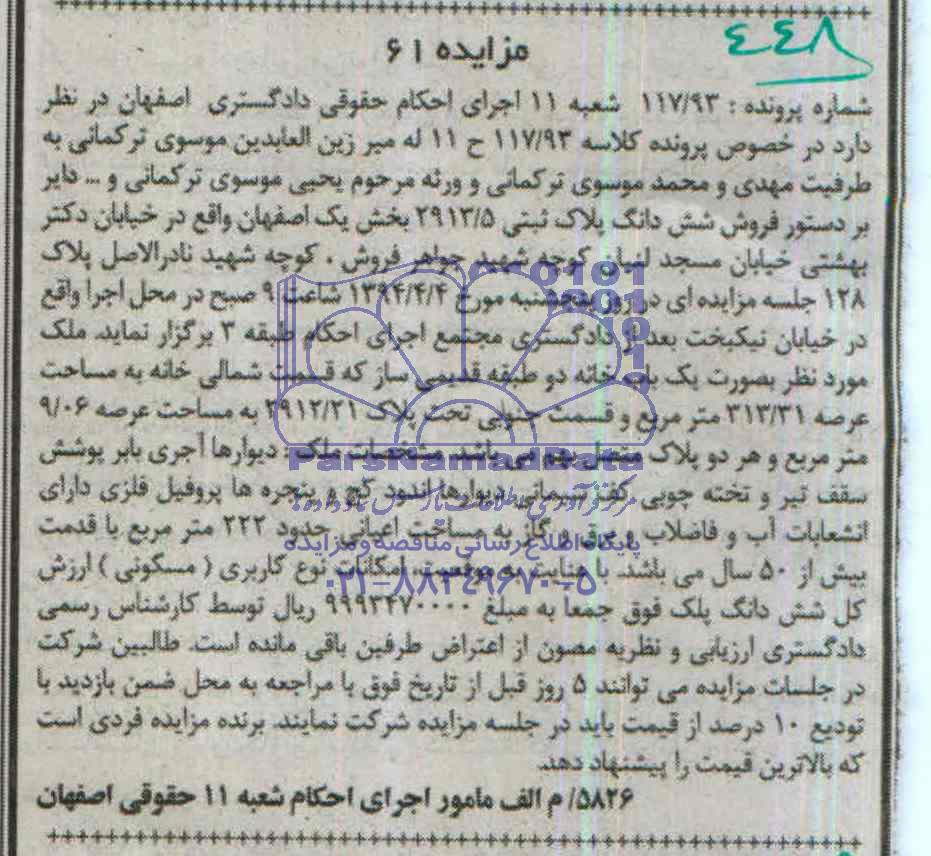 ۴۴۸
مزایده ۶۱
شماره پرونده : ۱۱۷/۹۳ شعبه ۱۱ اجرای احکام حقوقی دادگستری اصفهان در نظر
دارد در خصوص پرونده کلاسه ۱۱۷/۹۳ ح ۱۱ له میر زین العابدین موسوی ترکمانی به
طرفیت مهدی و محمد موسوی ترکمانی و ورثه مرحوم یحیی موسوی ترکمانی و ... دایر
بر دستور فروش شش دانگ پلاک ثبتی ۲۹۱۳/۵ بخش یک اصفهان واقع در خیابان دکتر
بهشتی خیابان مسجد لنبان کوچه شهید جواهر فروش ، کوچه شهید نادرالاصل پلاک
۱۲۸ جلسه مزایده ای در روز پنجشنبه مورخ ۱۳۹۴/۴/۴ ساعت ۹ صبح در محل اجرا واقع
در خیابان نیکبخت بعد از دادگستری مجتمع اجرای احکام طبقه ۳ برگزار نماید. ملک
مورد نظر بصورت یک باب خانه دو طبقه قدیمی ساز که قسمت شمالی خانه به مساحت
عرصه ۳۱۳/۳۱ متر مربع و قسمت جنوبی تحت پلاک ۲۹۱۲/۲۱ به مساحت عرصه ۹/۰۶
متر مربع و هر دو پلاک متصل بهم می باشد. مشخصات ملک : دیوارها آجری بابر پوشش
سقف تیر و تخته چوبی کف سیمانی دیوارها اندود گچ و پنجره ها پروفیل فلزی دارای
انشعابات آب و فاضلاب و برق و گاز به مساحت اعیانی حدود ۲۲۲ متر مربع با قدمت
بیش از ۵۰ سال می باشد. با عنایت به موقعیت، امکانات نوع کاربری ( مسکونی ) ارزش
کل شش دانگ پلک فوق جمعا به مبلغ ۹۹۹۳۴۷۰۰۰۰ ریال توسط کارشناس رسمی
دادگستری ارزیابی و نظریه مصون از اعتراض طرفین باقی مانده است. طالبین شرکت
در جلسات مزایده می توانند ۵ روز قبل از تاریخ فوق با مراجعه به محل ضمن بازدید با
تودیع ۱۰ درصد از قیمت باید در جلسه مزایده شرکت نمایند. برنده مزایده فردی است
که بالاترین قیمت را پیشنهاد دهد.
۵۸۲۶/ م الف مامور اجرای احکام شعبه ۱۱ حقوقی اصفهان
ParsNamadData
پایگاه اطلاع رسانی مناقصه و مزایده
۰۲۱-۸۸۳۴۹۶۷۰-۵